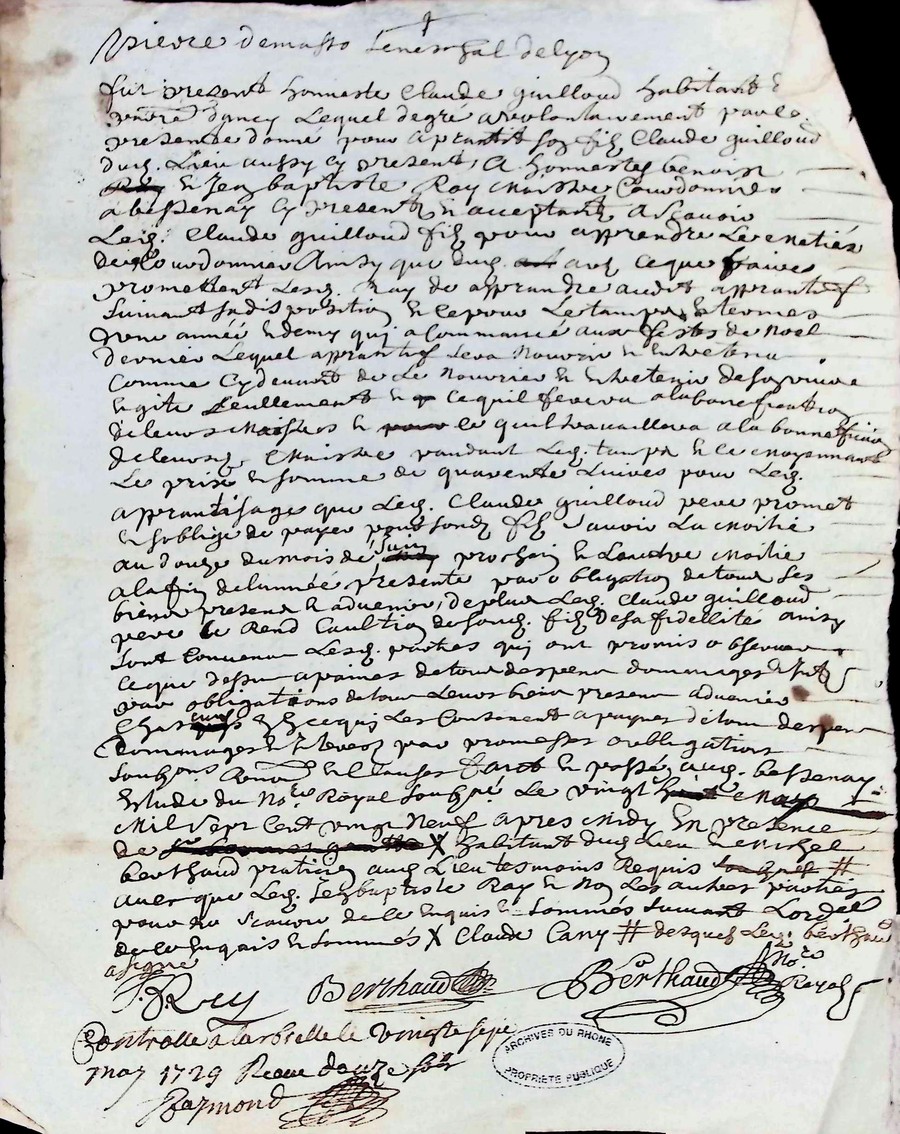 Pierre Demasso Seneschal de Lyon
fut present honneste Claude guilloud habitant
d'ancy Lequel de gré a vollontairement par le
presence donné pour aprantif son fils Claude guilloud
dud. Lieu aussy cy present, A honnestes benoist
Rey et Jean baptiste Ray Maistre Courdonnier
a bessenay cy present et acceptant A Scavoir
Led. Claude guilloud fils pour apprendre Le metier
de Courdonnier Ainsy que dud. art ce que faire
promettent Lesd. Ray de apprandre audit apprantif
Suivant Sa disposition et ce pour Le tamps et termes
d'une année et demy qui a Commancé aux festes de Noel
dernier Lequel apprantif sera Nourrir et Entretenu
Comme cy devant de Le Nourrir et Entretenir de son vivre
et gite seullement et ce qu'il fera a la
de leurs Maistres et ce quil travaillera a la bonne
de leursd. Maistre pandant Led. tamps et ce moyennant
Le prix et somme de quarente Livres pour Led.
apprantisages que Led. Claude guilloud pere promet
et soblige de payer pour sond. fils Scavoir La Moitié
au douze du mois de Juin prochain et Lautre Moitie
a la fin de lannée presente par obligation de tous ses
biens present et advenir, de plus Led. Claude guilloud
pere se Rend Caultion de sond. fils de sa fidellité Ainsy
sont Convenu Lesd. parties qui ont promis observer
ce que dessus a paines de tous despens dommages
par obligations de tous Leurs biens present advenir
Chascuns En ce qui Les Consernent a paynes de tous despens
dommages et Interest par promesses obligations
soubzmis Renon. et Clauses fait et passé aud. bessenay
Estude du No.re Royal soubz.né Le vingt May
Mil sept Cent vingt Neuf apres Midy En presence
de X habitant dud. Lieu et Michel
berthaud praticien aud. Lieu tesmoins Requis #
avec que Led. Jean baptiste Ray et Non Les autres parties
pour ne Scavoir de ce Enquis et sommés suivant Lord.
de ce Enquis et sommés X Claude Cany # desquels Led. berthaud
a signé
J. Rey Berthaud Berthaud No.re Royal
Controllé a larbrelle le vingte sept
may 1729 Receu douze sols
Raymond
ARCHIVES DU RHONE
PROPRIÉTÉ PUBLIQUE